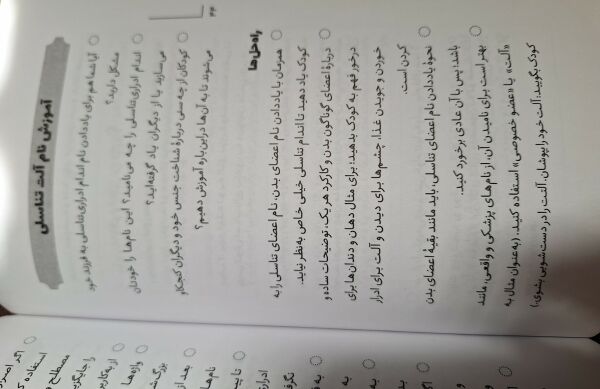 آموزش نام آلت تناسلی
آیا شما هم برای یاد دادن نام اندام ادراری تناسلی به فرزند خود
مشکل دارید؟
اندام ادراری تناسلی را چه می‌نامید؟ این نام‌ها را خودتان
می‌سازید یا از دیگران یاد گرفته‌اید؟
کودکان از چه سنی دربارهٔ شناخت جنس خود و دیگران کنجکاو
می‌شوند تا به آن‌ها در این باره آموزش دهیم؟
راه‌حل‌ها
همزمان با یاد دادن نام اعضای بدن، نام اعضای تناسلی را به
کودک یاد دهید تا اندام تناسلی خیلی خاص به نظر نیاید.
دربارهٔ اعضای گوناگون بدن و کارکرد هر یک، توضیحات ساده و
درخور فهم به کودک بدهید؛ برای مثال دهان و دندان‌ها برای
خوردن و جویدن غذا، چشم‌ها برای دیدن و آلت برای ادرار
کردن است.
نحوهٔ یاد دادن نام اعضای تناسلی، باید مانند بقیهٔ اعضای بدن
باشد؛ پس با آن عادی برخورد کنید.
بهتر است برای نامیدن آن، از نام‌های پزشکی و واقعی، مانند
«آلت» یا «عضو خصوصی» استفاده کنید. (به‌عنوان مثال به
کودک بگویید: آلت خود را بپوشان. آلتت را در دست‌شویی بشوی.)
اگر
استفاده
مصطلح
را جایگزین
واژه‌ها
بعد از
نام‌ها
تا
ادرار
به
به